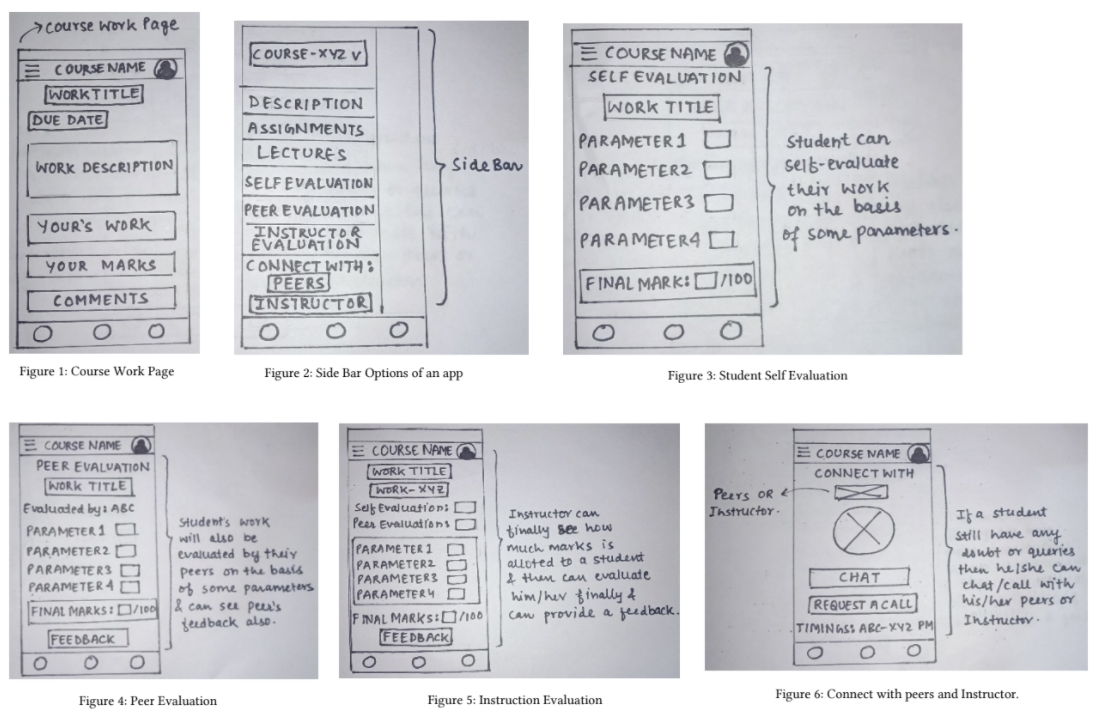 course work Page
COURSE NAME
WORK TITLE
DUE DATE
WORK DESCRIPTION
YOUR'S WORK
YOUR MARKS
COMMENTS
Figure 1: Course Work Page
COURSE-XYZ V
DESCRIPTION
ASSIGNMENTS
LECTURES
SELF EVALUATION
PEER EVALUATION
INSTRUCTOR
EVALUATION
CONNECT WITH:
PEERS
INSTRUCTOR
Side Bar
Figure 2: Side Bar Options of an app
COURSE NAME
SELF EVALUATION
WORK TITLE
PARAMETER1
PARAMETER2
PARAMETER3
PARAMETER4
FINAL MARK: /100
Student can
self-evaluate
their work
on the basis
of some parameters.
Figure 3: Student Self Evaluation
COURSE NAME
PEER EVALUATION
WORK TITLE
Evaluated by: ABC
PARAMETER1
PARAMETER2
PARAMETER3
PARAMETER4
FINAL MARKS: /100
FEEDBACK
Student's work
will also be
evaluated by their
peers on the basis
of some parameters
& can see peer's
feedback also.
Figure 4: Peer Evaluation
COURSE NAME
WORK TITLE
WORK-XYZ
Self Evaluation:
Peer Evaluation:
PARAMETER1
PARAMETER2
PARAMETER3
PARAMETER4
FINAL MARKS: /100
FEEDBACK
Instructor can
finally see how
much marks is
alloted to a student
& then can evaluate
him/her finally &
can provide a feedback.
Figure 5: Instruction Evaluation
COURSE NAME
CONNECT WITH
Peers OR
Instructor.
CHAT
REQUEST A CALL
TIMINGS: ABC-XYZ PM
If a student
still have any
doubt or queries
then he/she can
chat/call with
his/her peers or
Instructor.
Figure 6: Connect with peers and Instructor.